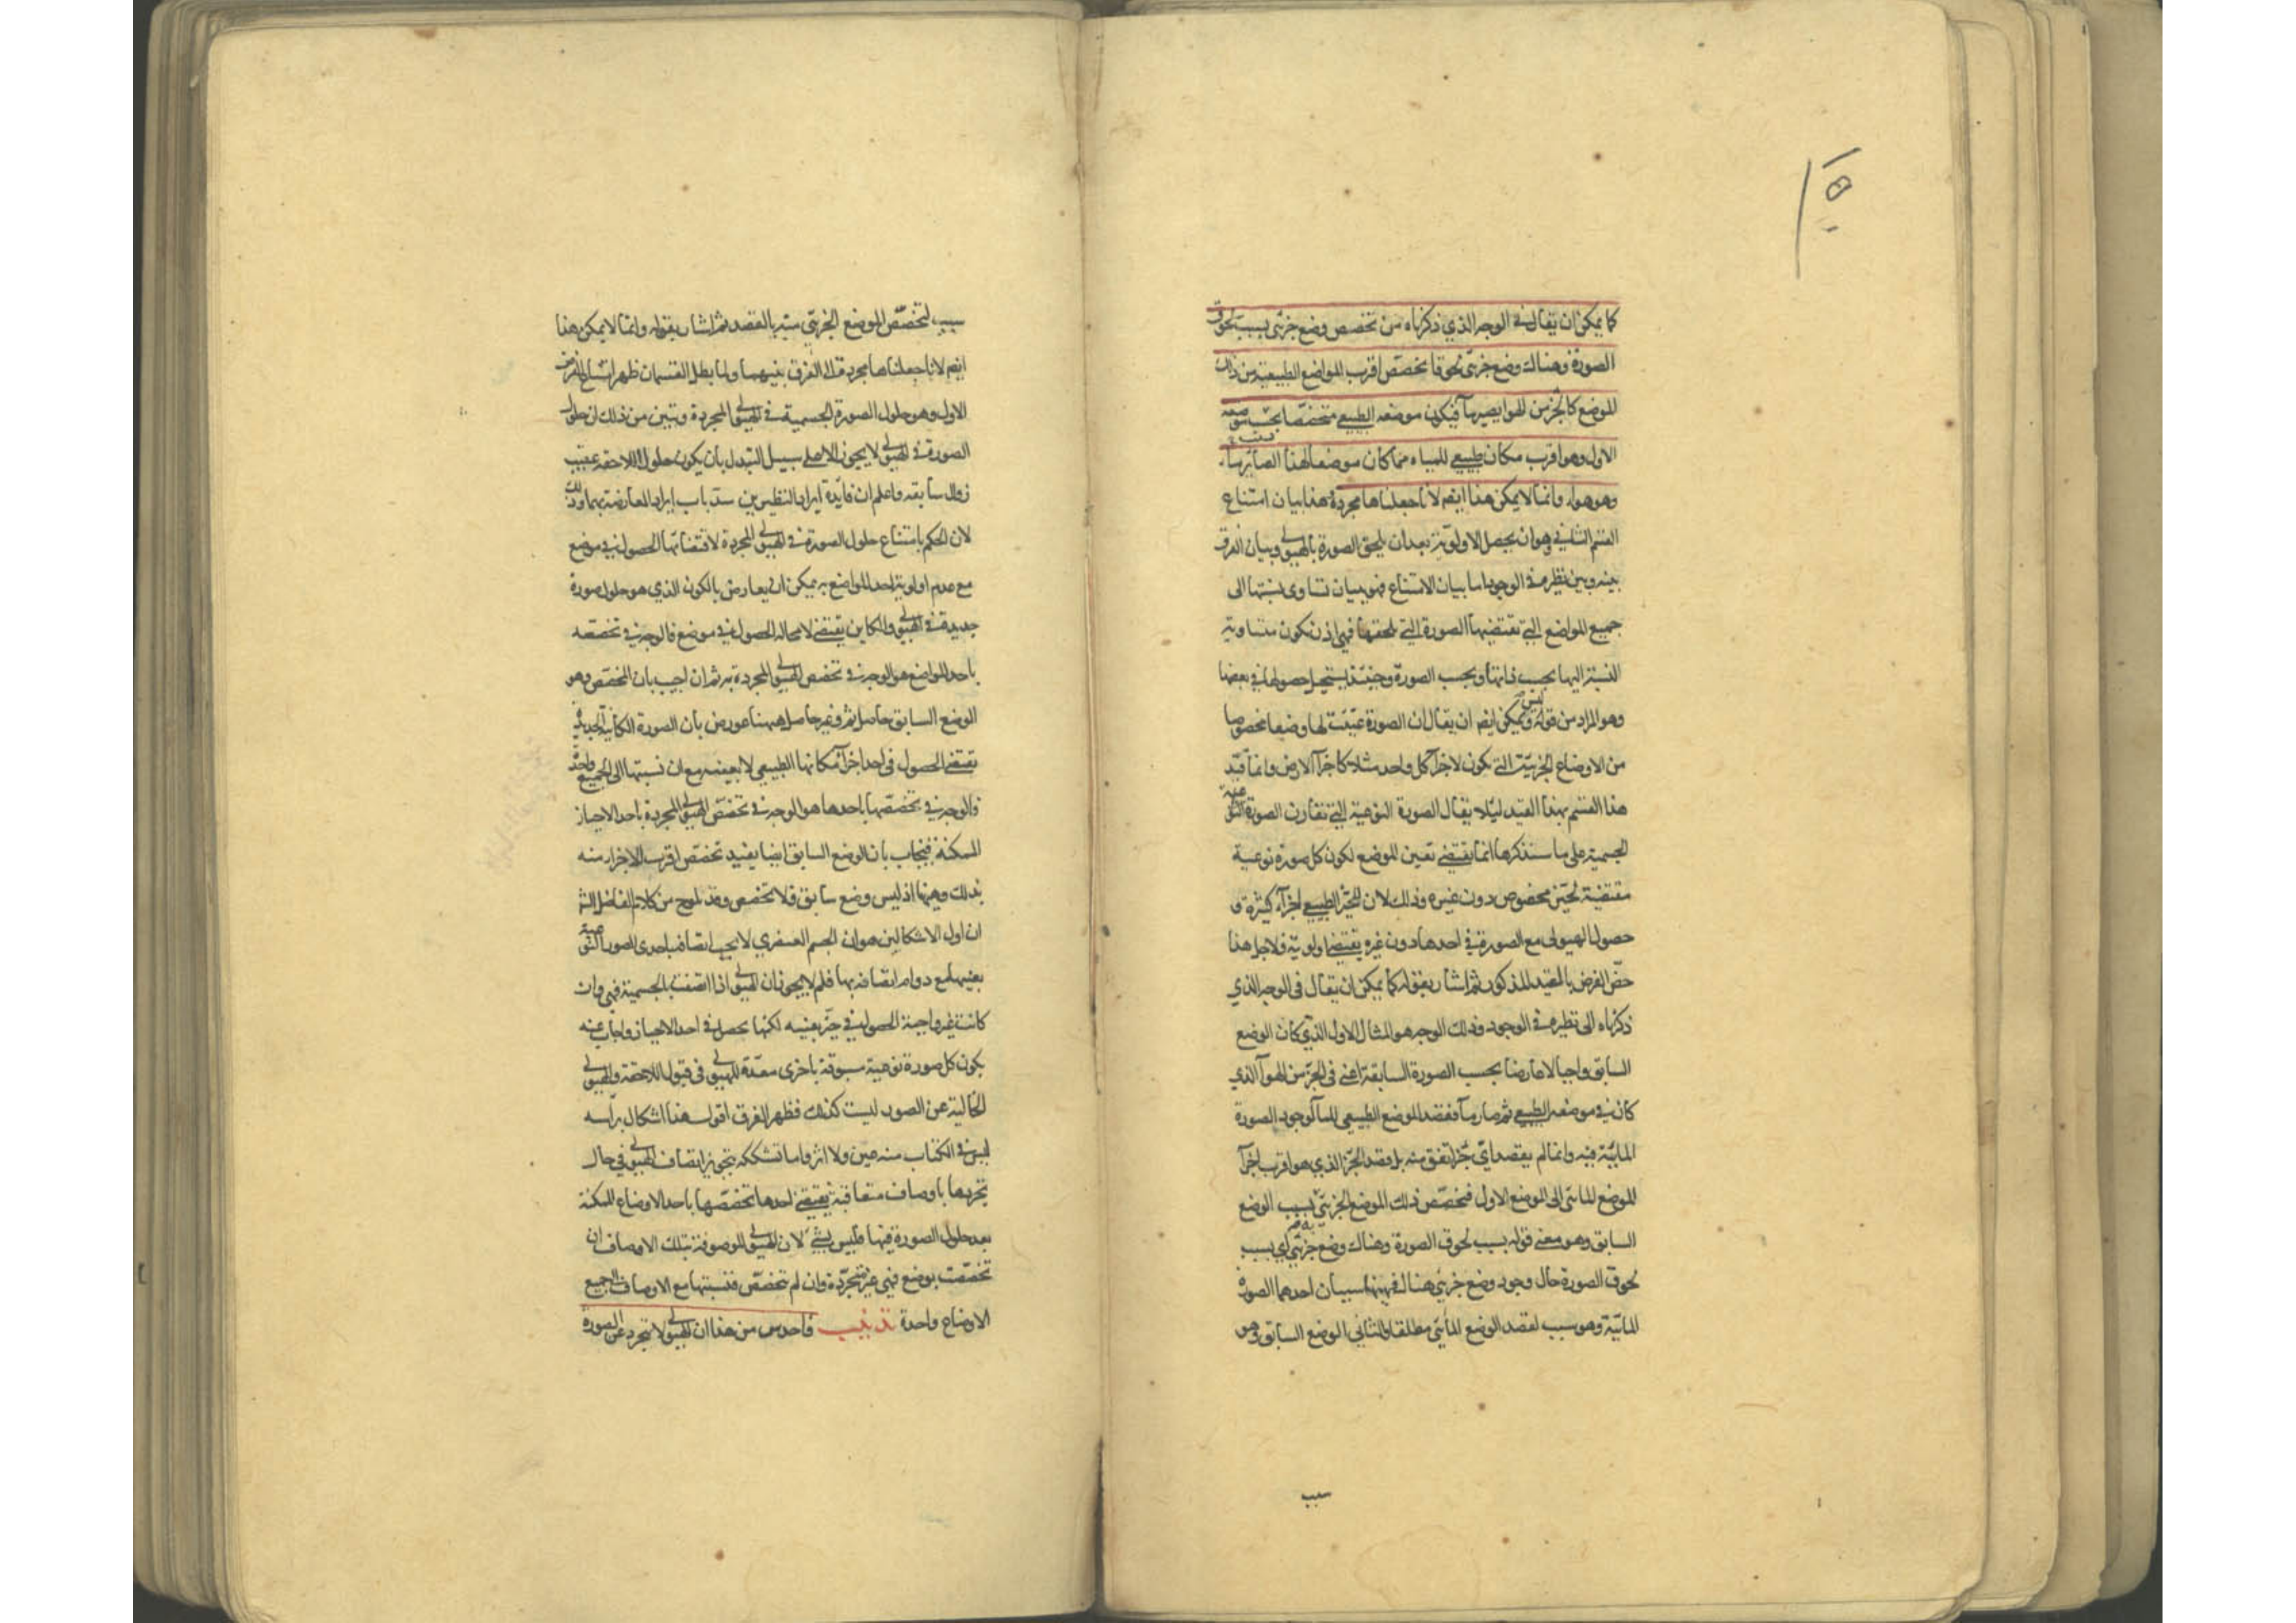 كما يمكن ان يقال في الوجه الذي ذكرناه من تخصص وضع جزئى بسبب لحوق
الصورة وهناك وضع جزئى لحوقا يخصص اقرب المواضع الطبيعية من ذلك
الموضع كالجزء من الهوا يصير ماً فيكون موضعه الطبيعي متخصصا بحسب موضعه
الاول وهو اقرب مكان طبيعي للمياه مما كان موضعا لهذا الصاير ماً
وهو هواء وانما لا يمكن هذا ايضم لانا جعلناها مجردة هذا بيان امتناع
القسم الثاني وهو ان يحصل الاولوية بعد ان يلحق الصورة بالهيولى وبيان الفرق
بينه وبين نظيره في الوجود اما بيان الامتناع فهو ببيان تساوى نسبتها الى
جميع المواضع التي تقتضيها الصورة التي تلحقها فهي اذن تكون متساوية
النسبة اليها بحسب ذاتها وبحسب الصورة وحينئذ يستحيل حصولها في بعضها
وهو المراد من قوله وليس يمكن ايضم ان يقال ان الصورة عينت لها وضعا مخصوصا
من الاوضاع الجزئية التي تكون لاجزآ كل واحد مثلا كاجزآ الارض وانما قيد
هذا القسم بهذا القيد ليلا يقال الصورة النوعية التي تقارن الصورة
الجسمية على ما سنذكرها انما يقتضي تعين الموضع لكون كل صورة نوعية
مقتضية لحيز مخصوص دون غيره وذلك لان للحيز الطبيعي اجزآء كثيرة و
حصول الهيولى مع الصورة في احدها دون غيره يقتضي اولوية فلاجل هذا
خص الفرض بالقيد المذكور ثم اشار بقوله كما يمكن ان يقال في الوجه الذي
ذكرناه الى نظيره في الوجود وذلك الوجه هو المثال الاول الذي كان الوضع
السابق واجبا لا عارضا بحسب الصورة السابقة اعني في الجزء من الهوآ الذي
كان في موضعه الطبيعي ثم صار مآ فقصد الموضع الطبيعي للمآ لوجود الصورة
المائية فيه وانما لم يقصد اى جزء اتفق منه بل قصد الجزء الذي هو اقرب اجزآ
الموضع المائى الى الموضع الاول فتخصص ذلك الموضع الجزئى بسبب الوضع
السابق وهو معنى قوله بسبب لحوق الصورة وهناك وضع جزئي اي بسبب
لحوق الصورة حال وجود وضع جزئي هناك فههنا سببان احدهما الصورة
المائية وهو سبب لقصد الوضع المائى مطلقا والثاني الوضع السابق وهو
سبب
سبب لتخصص الموضع الجزئي منه بالقصد ثم اشار بقوله وانما لا يمكن هذا
ايضم لانا جعلناها مجردة الى الفرق بينهما ولما بطل القسمان ظهر امتناع الفرض
الاول وهو حلول الصورة الجسمية في الهيولى المجردة وتبين من ذلك ان حلول
الصورة في الهيولى لا يجوز الا على سبيل التبدل بان يكون حلول اللاحقة عقيب
زوال سابقه واعلم ان فايدة ايراد النظيرين سد باب ايراد المعارضة بهما وذلك
لان الحكم بامتناع حلول الصورة في الهيولى المجردة لاقتضائها الحصول في موضع
مع عدم اولوية احد المواضع به يمكن ان يعارض بالكون الذي هو حلول صورة
جديدة في الهيولى والكاين يقتضي لا محالة الحصول في موضع فالوجه في تخصصه
باحد المواضع هو الوجه في تخصص الهيولى المجردة به ثم ان اجيب بان المخصص وهو
الوضع السابق حاصل ثم وغير حاصل ههنا عورض بان الصورة الكائنة الجديدة
تقتضي الحصول في احد اجزآء مكانها الطبيعي لا بعينه مع ان نسبتها الى الجميع واحدة
فالوجه في تخصصها باحدها هو الوجه في تخصص الهيولى المجردة باحد الاحياز
الممكنة فيجاب بان الوضع السابق ايضا يفيد تخصص اقرب الاجزاء منه
بذلك وههنا اذ ليس وضع سابق فلا تخصص وقد لوح من كلام الفاضل الشارح
ان اول الاشكالين هو ان الجسم العنصري لا يجب اتصافه باحدى الصور النوعية
بعينها مع دوام اتصافه بها فلم لا يجوز ان الهيولى اذا اتصفت بالجسمية فهي وان
كانت غير واجبة الحصول في حيز بعينه لكنها يحصل في احد الاحياز واجاب عنه
بكون كل صورة نوعية مسبوقة باخرى معدة للهيولى في قبول اللاحقة والهيولى
الخالية عن الصور ليست كذلك فظهر الفرق اقول هذا اشكال برأسه
ليس في الكتاب منه عين ولا اثر واما تشككه بتجويز اتصاف الهيولى في حال
تجردها باوصاف متعاقبة يقتضي احدها تخصصها باحد الاوضاع الممكنة
بعد حلول الصورة فيها فليس بشئ لان الهيولى الموصوفة بتلك الاوصاف ان
تخصصت بوضع فهي غير متجردة وان لم تتخصص فنسبتها مع الاوصاف الى جميع
الاوضاع واحدة تذنيب فاحدس من هذا ان الهيولى لا تتجرد عن الصورة